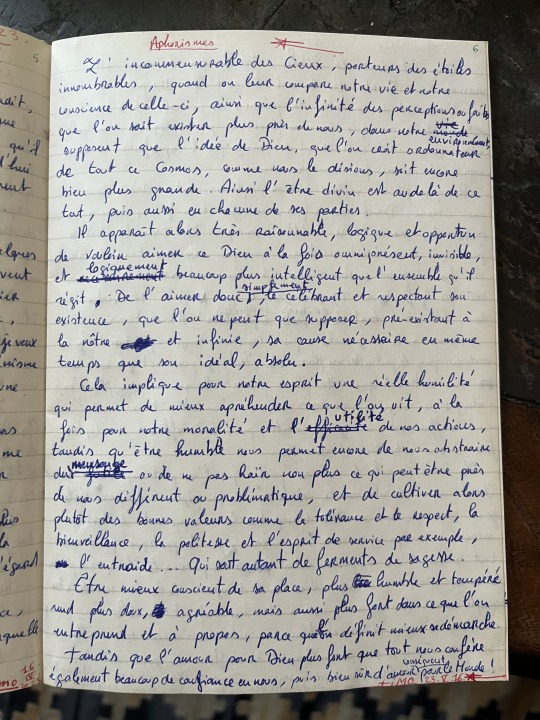 Aphorismes
6
5
L'incommensurable des Cieux, porteurs des étoiles
innombrables, quand on leur compare notre vie et notre
conscience de celle-ci, ainsi que l'infinité des perceptions ou faits
que l'on sait exister plus près de nous, dans notre
environnement,
supposent que l'idée de Dieu, que l'on croit ordonnateur
de tout ce Cosmos, comme nous le disions, soit encore
bien plus grande. Ainsi l'être divin est au delà de ce
tout, puis aussi en chacune de ses parties.
Il apparaît alors très raisonnable, logique et opportun
de vouloir aimer ce Dieu à la fois omniprésent, invisible,
et logiquement beaucoup plus intelligent que l'ensemble qu'il
régit. De l'aimer donc simplement, le célébrant et respectant son
existence, que l'on ne peut que supposer, pré-existant à
la nôtre et infinie, sa cause nécessaire en même
temps que son idéal, absolu.
Cela implique pour notre esprit une réelle humilité
qui permet de mieux apréhender ce que l'on vit, à la
fois pour notre moralité et l'utilité de nos actions,
tandis qu'être humble nous permet encore de nous abstraire
du mensonge ou de ne pas haïr non plus ce qui peut être près
de nous différent ou problématique, et de cultiver alors
plutôt des bonnes valeurs comme la tolérance et le respect, la
bienveillance, la politesse et l'esprit de service par exemple,
l'entraide... Qui sont autant de ferments de sagesse.
Être mieux conscient de sa place, plus humble et tempéré
rend plus doux, agréable, mais aussi plus fort dans ce que l'on
entreprend et à propos, parce qu'on définit mieux sa démarche.
Tandis que l'amour pour Dieu plus fort que tout nous confère
également beaucoup de confiance en nous, puis bien sûr d'amour conséquent pour le Monde!